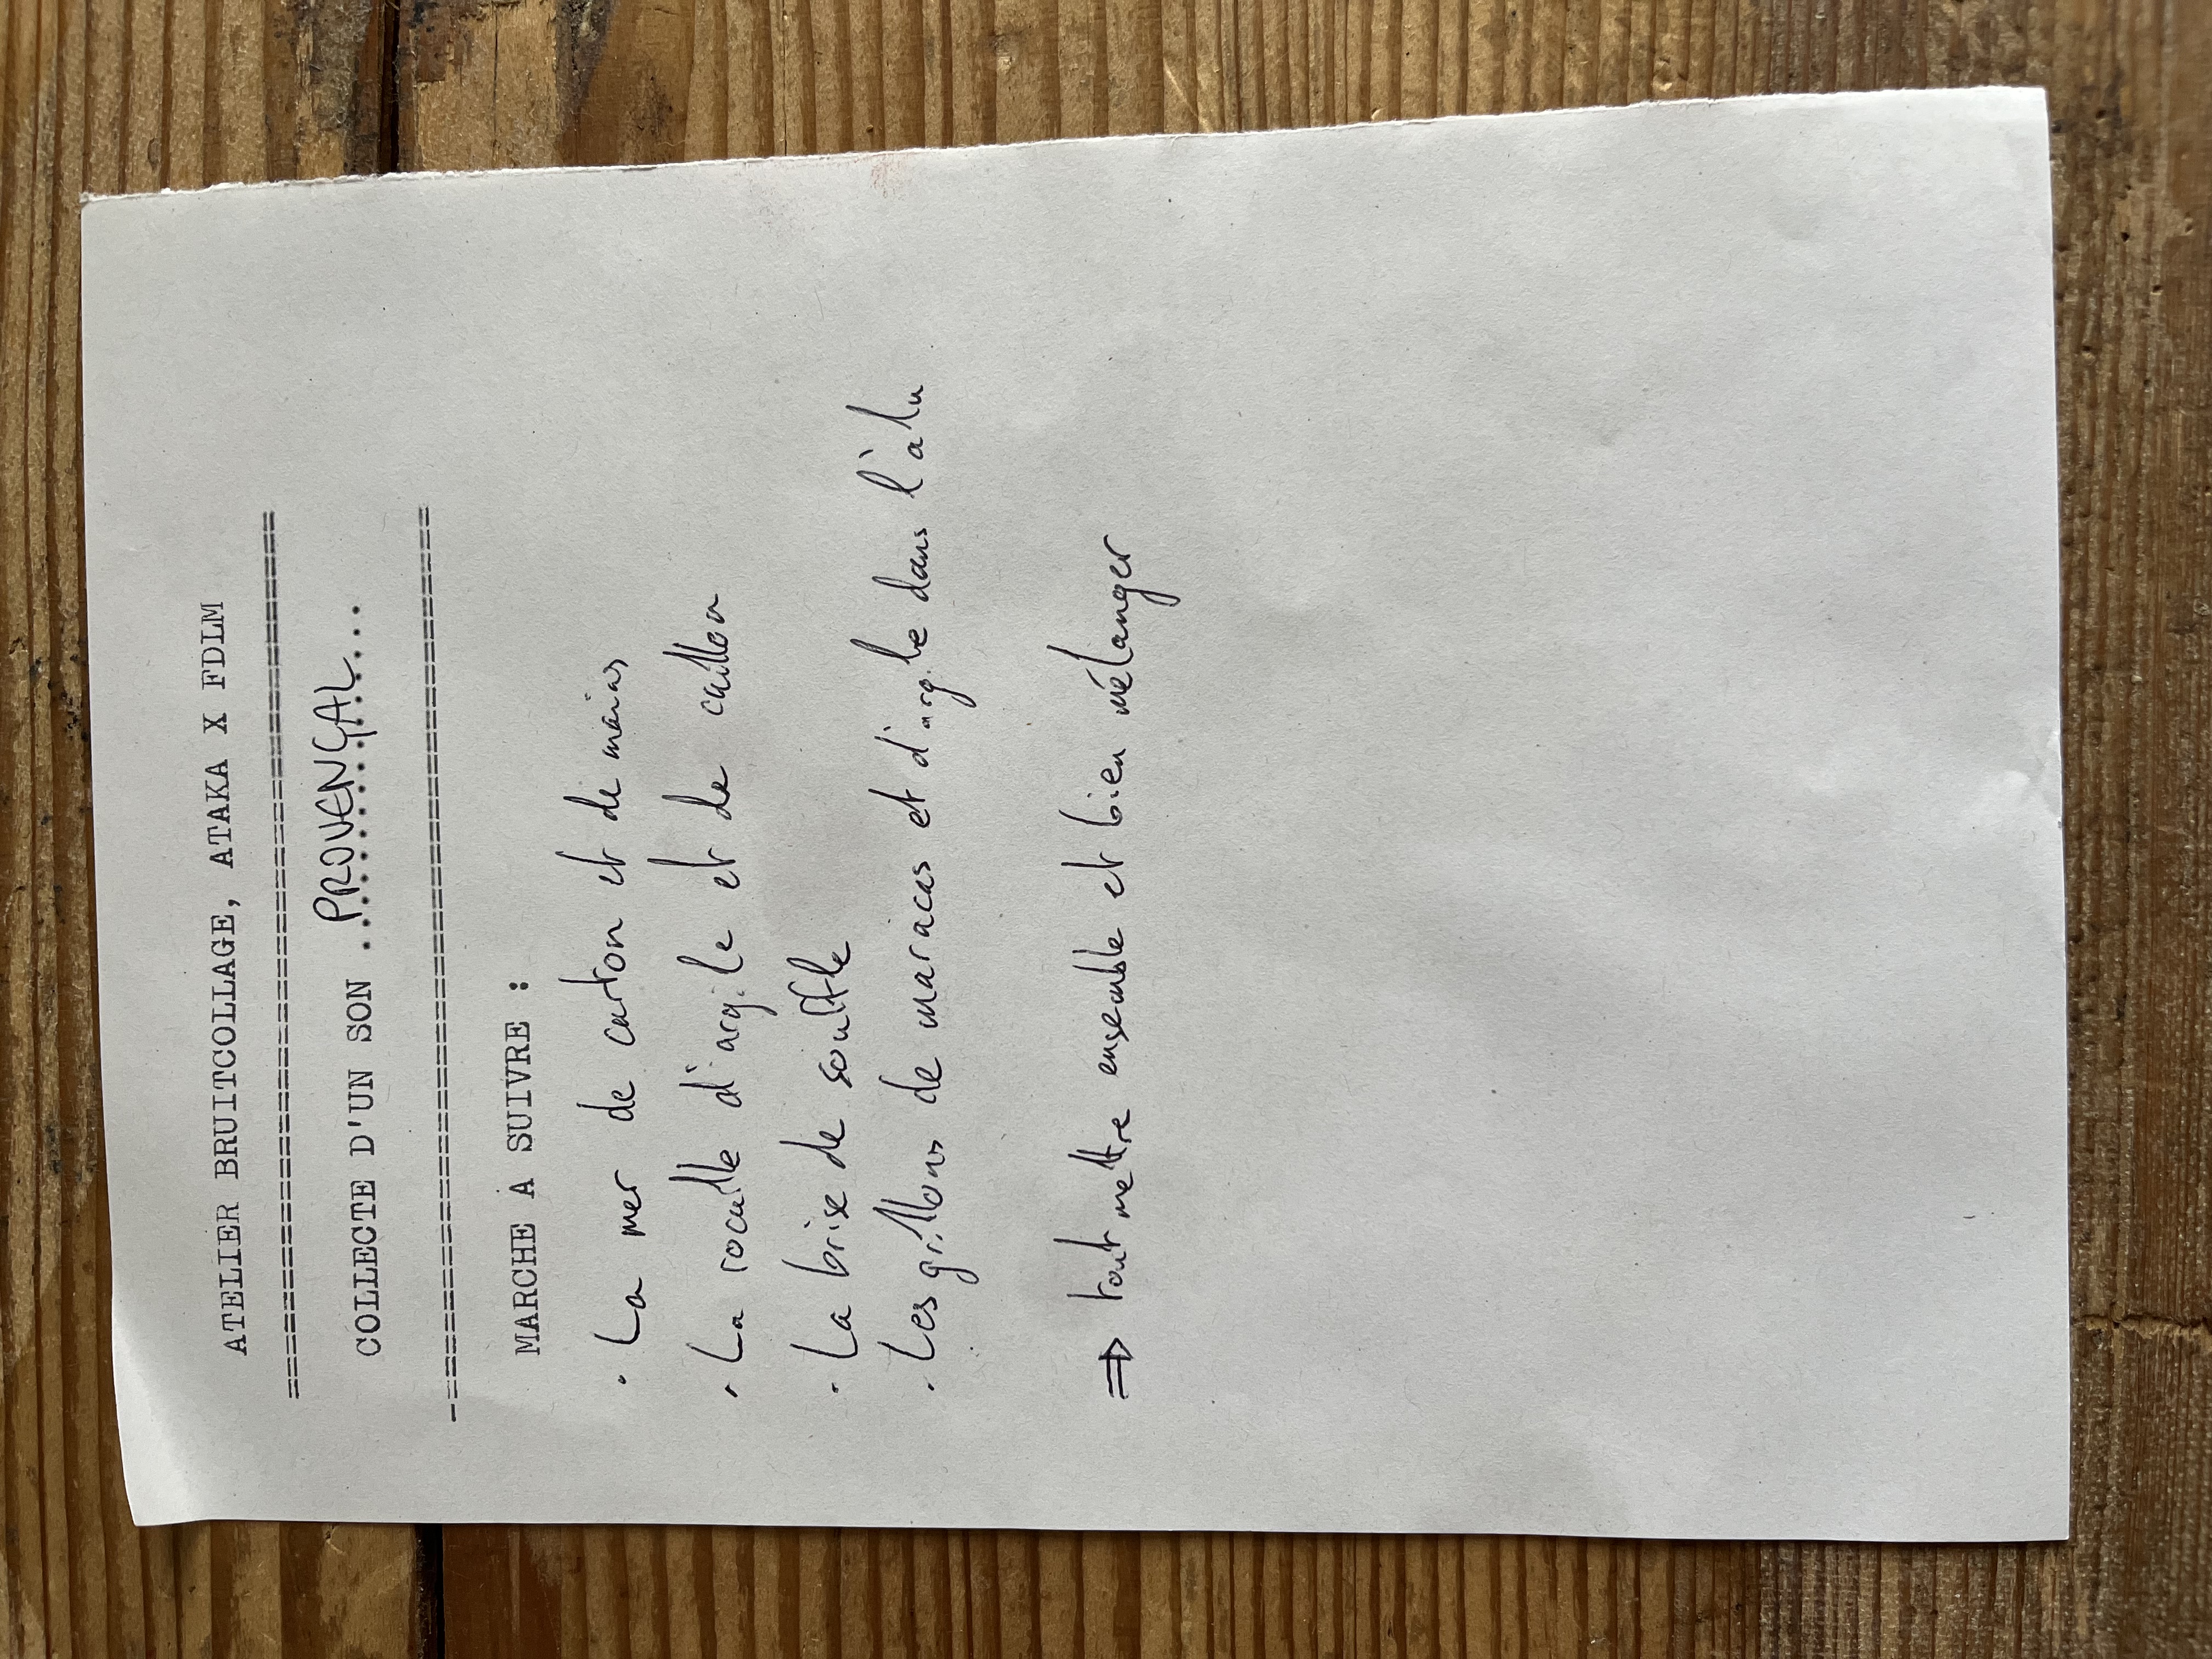 ATELIER BRUITCOLLAGE, ATAKA X FDLM
==================================================
COLLECTE D'UN SON ..PROVENÇAL...
--================================================
MARCHE A SUIVRE :
· La mer de carton et de mains
· La rocaille d'argile et de caillou
· La brise de souffle
· Les grillons de maracas et d'argile dans l'alu
⇒ tout mettre ensemble et bien mélanger